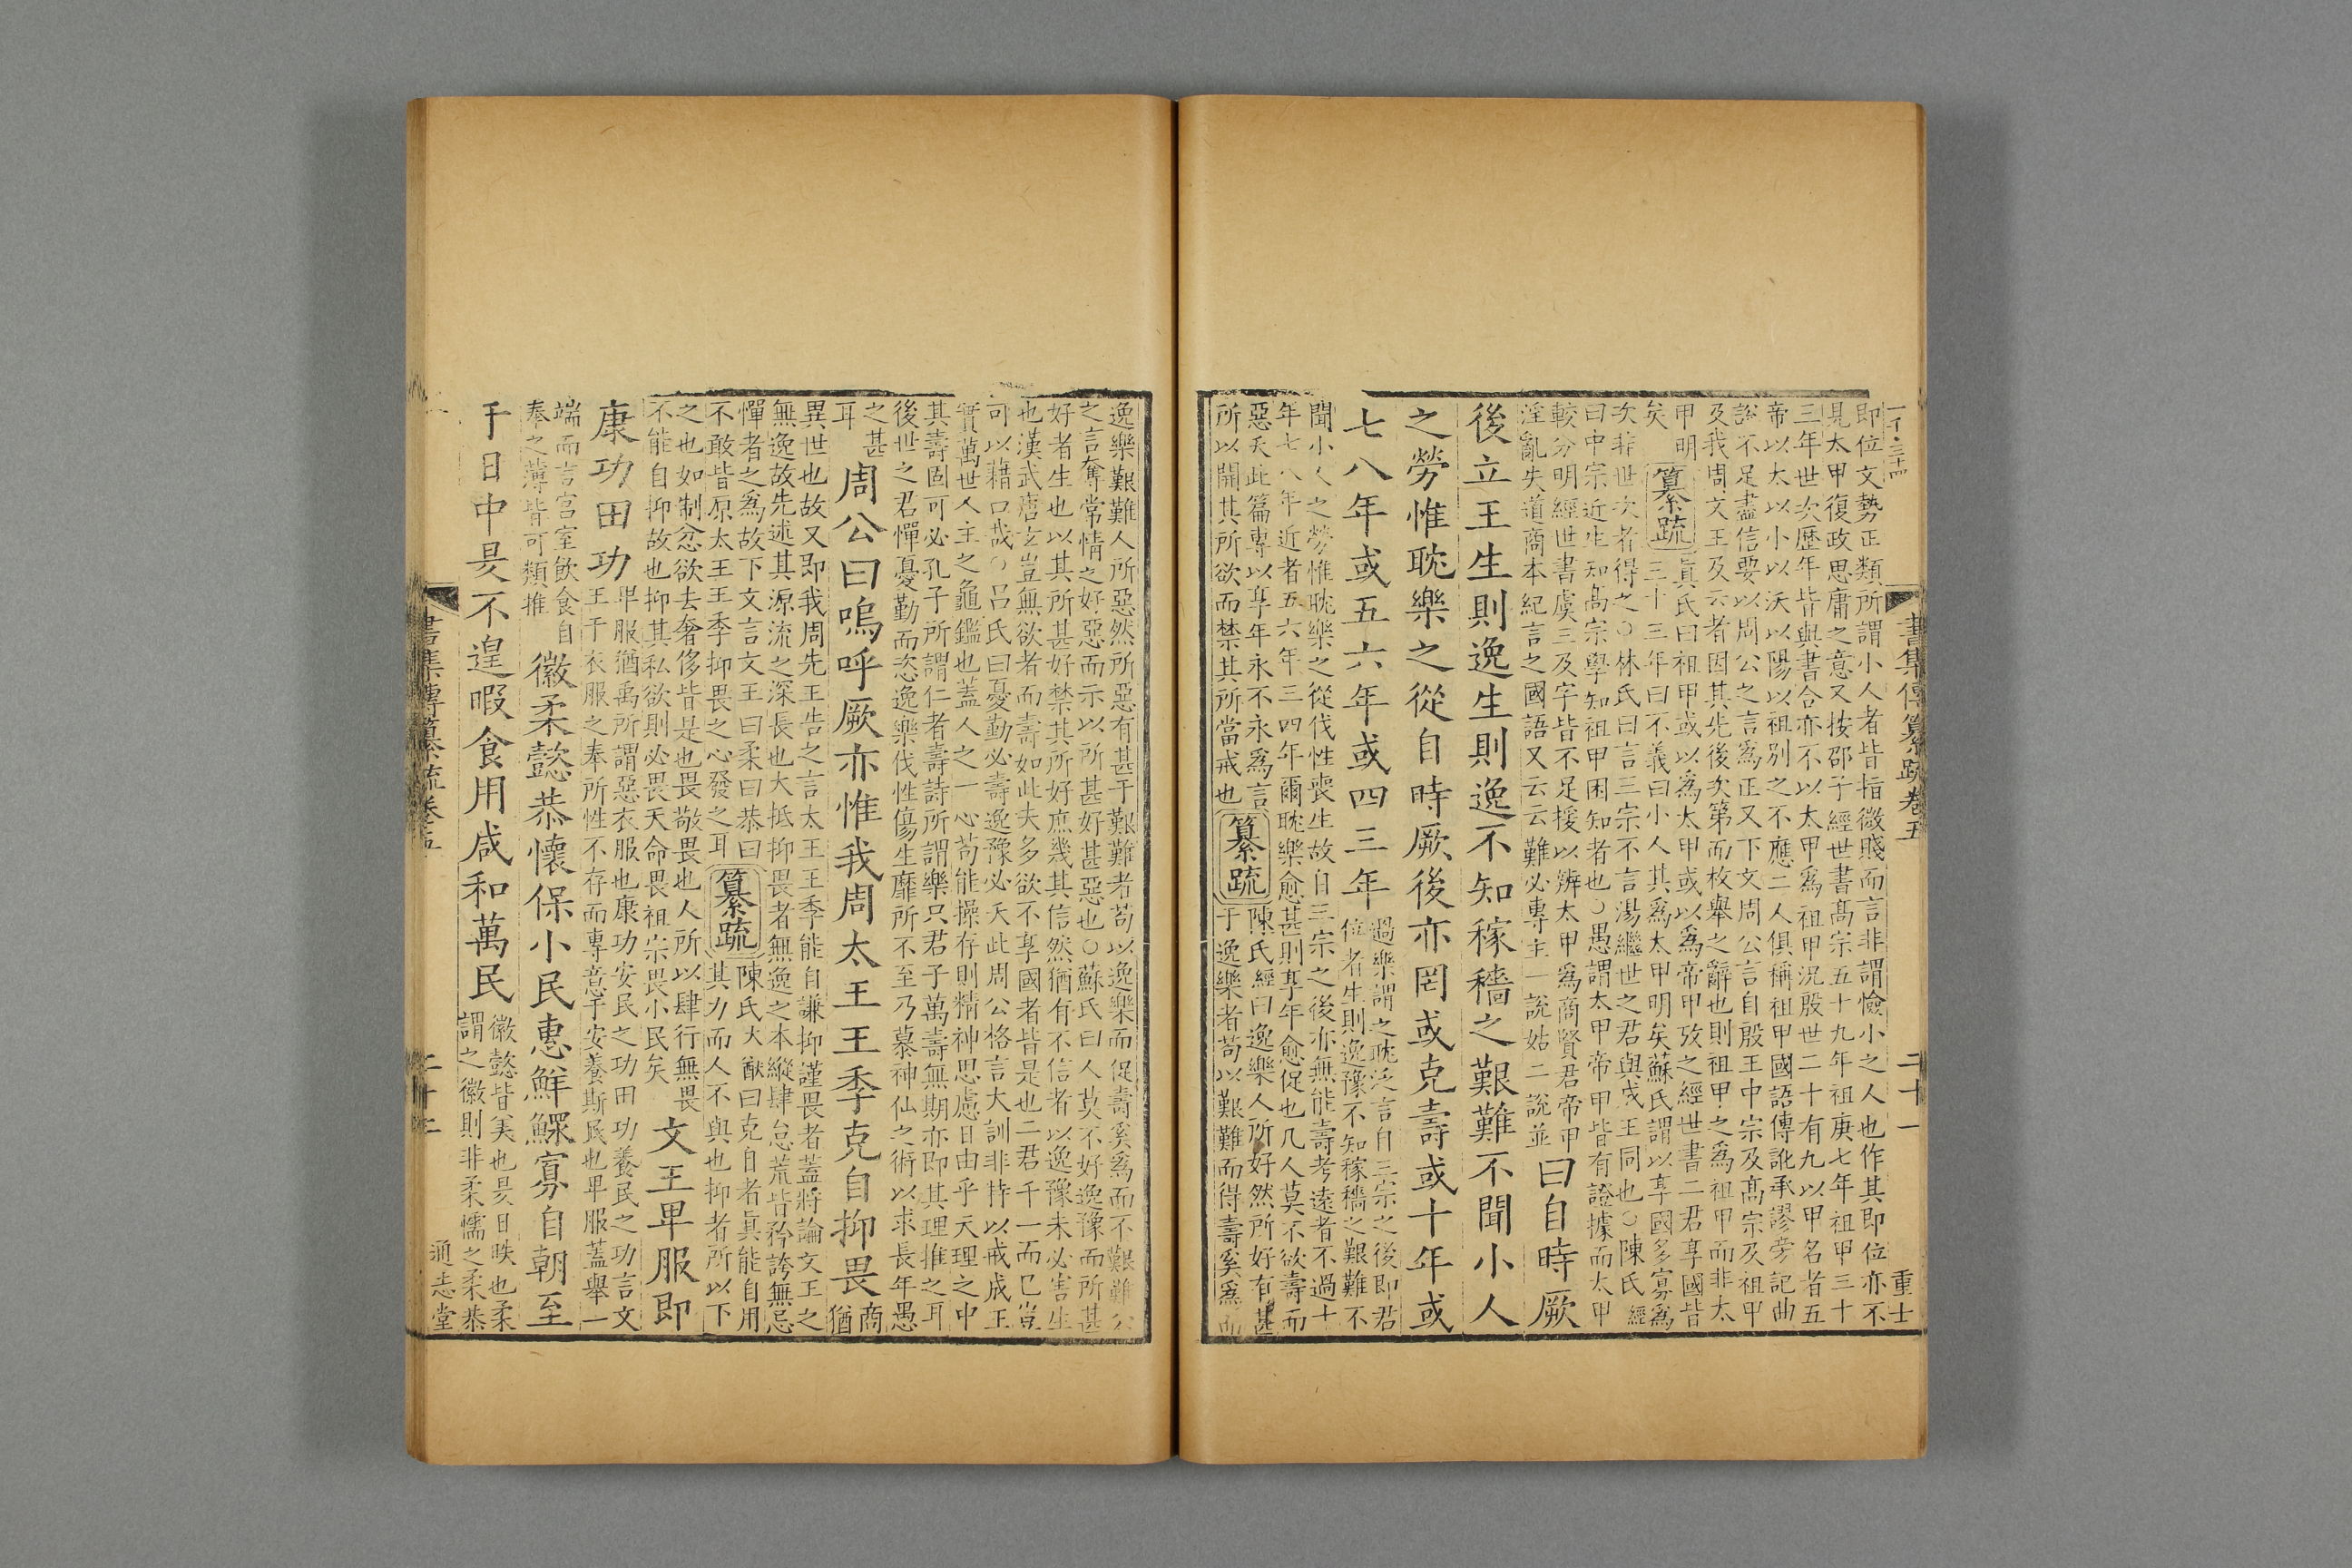 即位文勢正類所謂小人者皆指微賤而言非謂憸小之人也作其即位亦不
見太甲復政思庸之意又按邵子經世書髙宗五十九年祖庚七年祖甲三十
三年世次歷年皆與書合亦不以太甲爲祖甲況殷世二十有九以甲名者五
帝以太以小以沃以陽以祖別之不應二人俱稱祖甲國語傳訛承謬旁記曲
說不足盡信要以周公之言爲正又下文周公言自殷王中宗及髙宗及祖甲
及我周文王及云者因其先後次第而枚舉之辭也則祖甲之爲祖甲而非太
甲明
矣
纂疏
眞氏曰祖甲或以爲太甲或以爲帝甲攷之經世書二君享國皆
三十三年曰不義曰小人其爲太甲明矣蘇氏謂以享國多寡爲
次非世次者得之○林氏曰言三宗不言湯繼世之君與成王同也○陳氏經
曰中宗近生知髙宗學知祖甲困知者也○愚謂太甲帝甲皆有證據而太甲
較分明經世書虞三及字皆不足援以辨太甲爲商賢君帝甲
淫亂失道商本紀言之國語又云云難必專主一說姑二說並
曰自時厥
後立王生則逸生則逸不知稼穡之艱難不聞小人
之勞惟耽樂之從自時厥後亦罔或克壽或十年或
七八年或五六年或四三年
過樂謂之耽泛言自三宗之後即君
位者生則逸豫不知稼穡之艱難不
聞小人之勞惟耽樂之從伐性喪生故自三宗之後亦無能壽考遠者不過十
年七八年近者五六年三四年爾耽樂愈甚則享年愈促也凡人莫不欲壽而
惡夭此篇專以享年永不永爲言
所以開其所欲而禁其所當戒也
纂疏
陳氏經曰逸樂人所好然所好有甚
于逸樂者苟以艱難而得壽奚爲而
書集傳纂疏卷五
二十一
重士
逸樂艱難人所惡然所惡有甚于艱難者苟以逸樂而促壽奚爲而不艱難公
之言奪常情之好惡而示以所甚好甚惡也○蘇氏曰人莫不好逸豫而所甚
好者生也以其所甚好禁其所好庶幾其信然猶有不信者以逸豫未必害生
也漢武唐玄豈無欲者而壽如此夫多欲不享國者皆是也二君千一而已豈
可以藉口哉○呂氏曰憂勤必壽逸豫必夭此周公格言大訓非特以戒成王
實萬世人主之龜鑑也蓋人之一心苟能操存則精神思慮日由乎天理之中
其壽固可必孔子所謂仁者壽詩所謂樂只君子萬壽無期亦即其理推之耳
後世之君憚憂勤而恣逸樂伐性傷生靡所不至乃慕神仙之術以求長年愚
之甚
耳
周公曰嗚呼厥亦惟我周太王王季克自抑畏
商
猶
異世也故又即我周先王告之言太王王季能自謙抑謹畏者蓋將論文王之
無逸故先述其源流之深長也大抵抑畏者無逸之本縱肆怠荒皆矜誇無忌
憚者之爲故下文言文王曰柔曰恭曰
不敢皆原太王王季抑畏之心發之耳
纂疏
陳氏大猷曰克自者眞能自用
其力而人不與也抑者所以下
之也如制忿欲去奢侈皆是也畏敬畏也人所以肆行無畏
不能自抑故也抑其私欲則必畏天命畏祖宗畏小民矣
文王卑服即
康功田功
卑服猶禹所謂惡衣服也康功安民之功田功養民之功言文
王于衣服之奉所性不存而專意于安養斯民也卑服蓋舉一
端而言宮室飲食自
奉之薄皆可類推
徽柔懿恭懷保小民惠鮮鰥寡自朝至
于日中昃不遑暇食用咸和萬民
徽懿皆美也昃日昳也柔
謂之徽則非柔懦之柔恭
通志堂